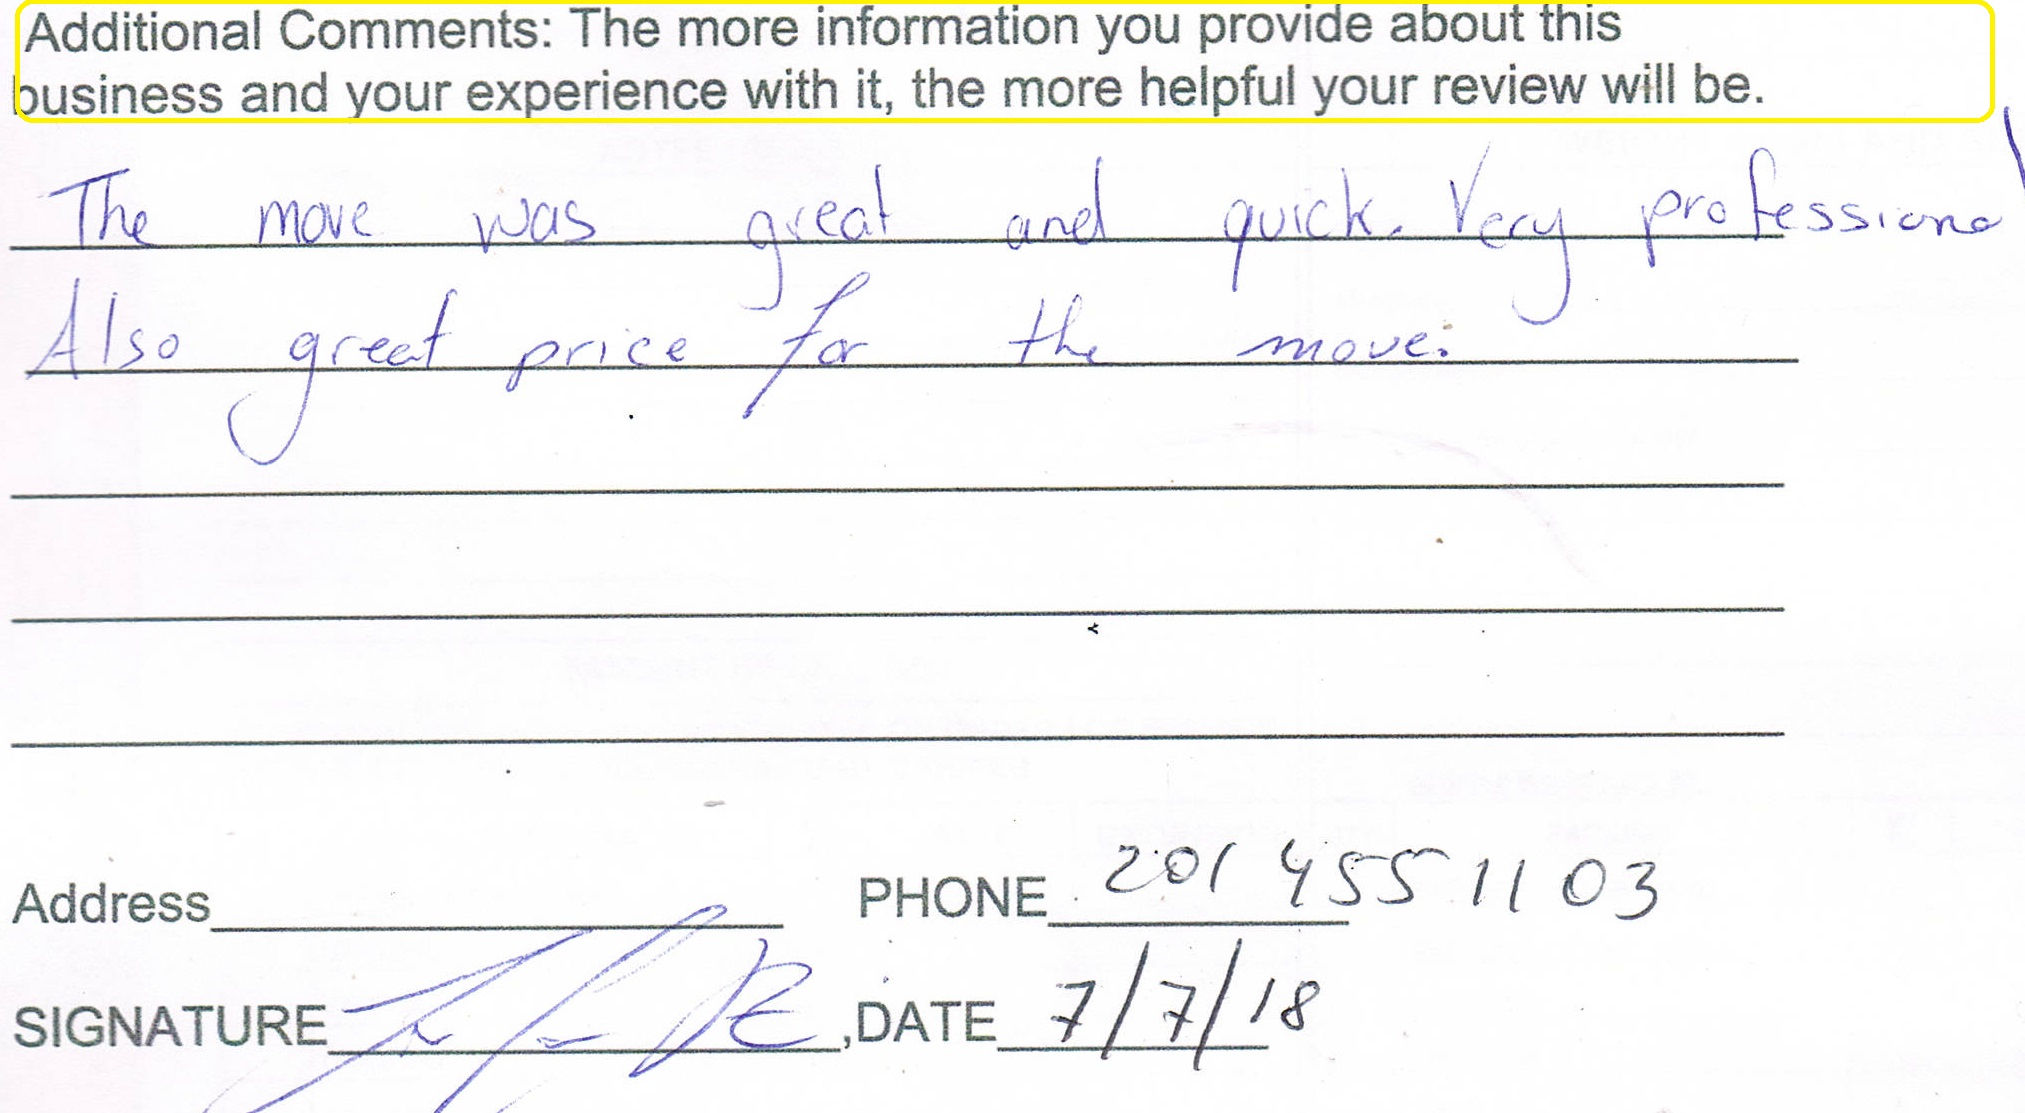 Additional Comments: The more information you provide about this
business and your experience with it, the more helpful your review will be.
The move was great and quick. Very professional
Also great price for the move.
Address PHONE 201 455 1103
SIGNATURE , DATE 7/7/18